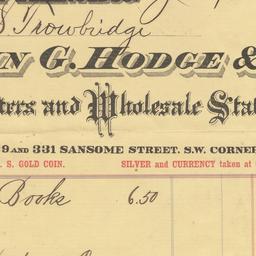 Trowbridge
N G. HODGE &
ters and Wholesale Stat
9 AND 331 SANSOME STREET. S.W. CORNER
S. GOLD COIN. SILVER and CURRENCY taken at
Books 6.50